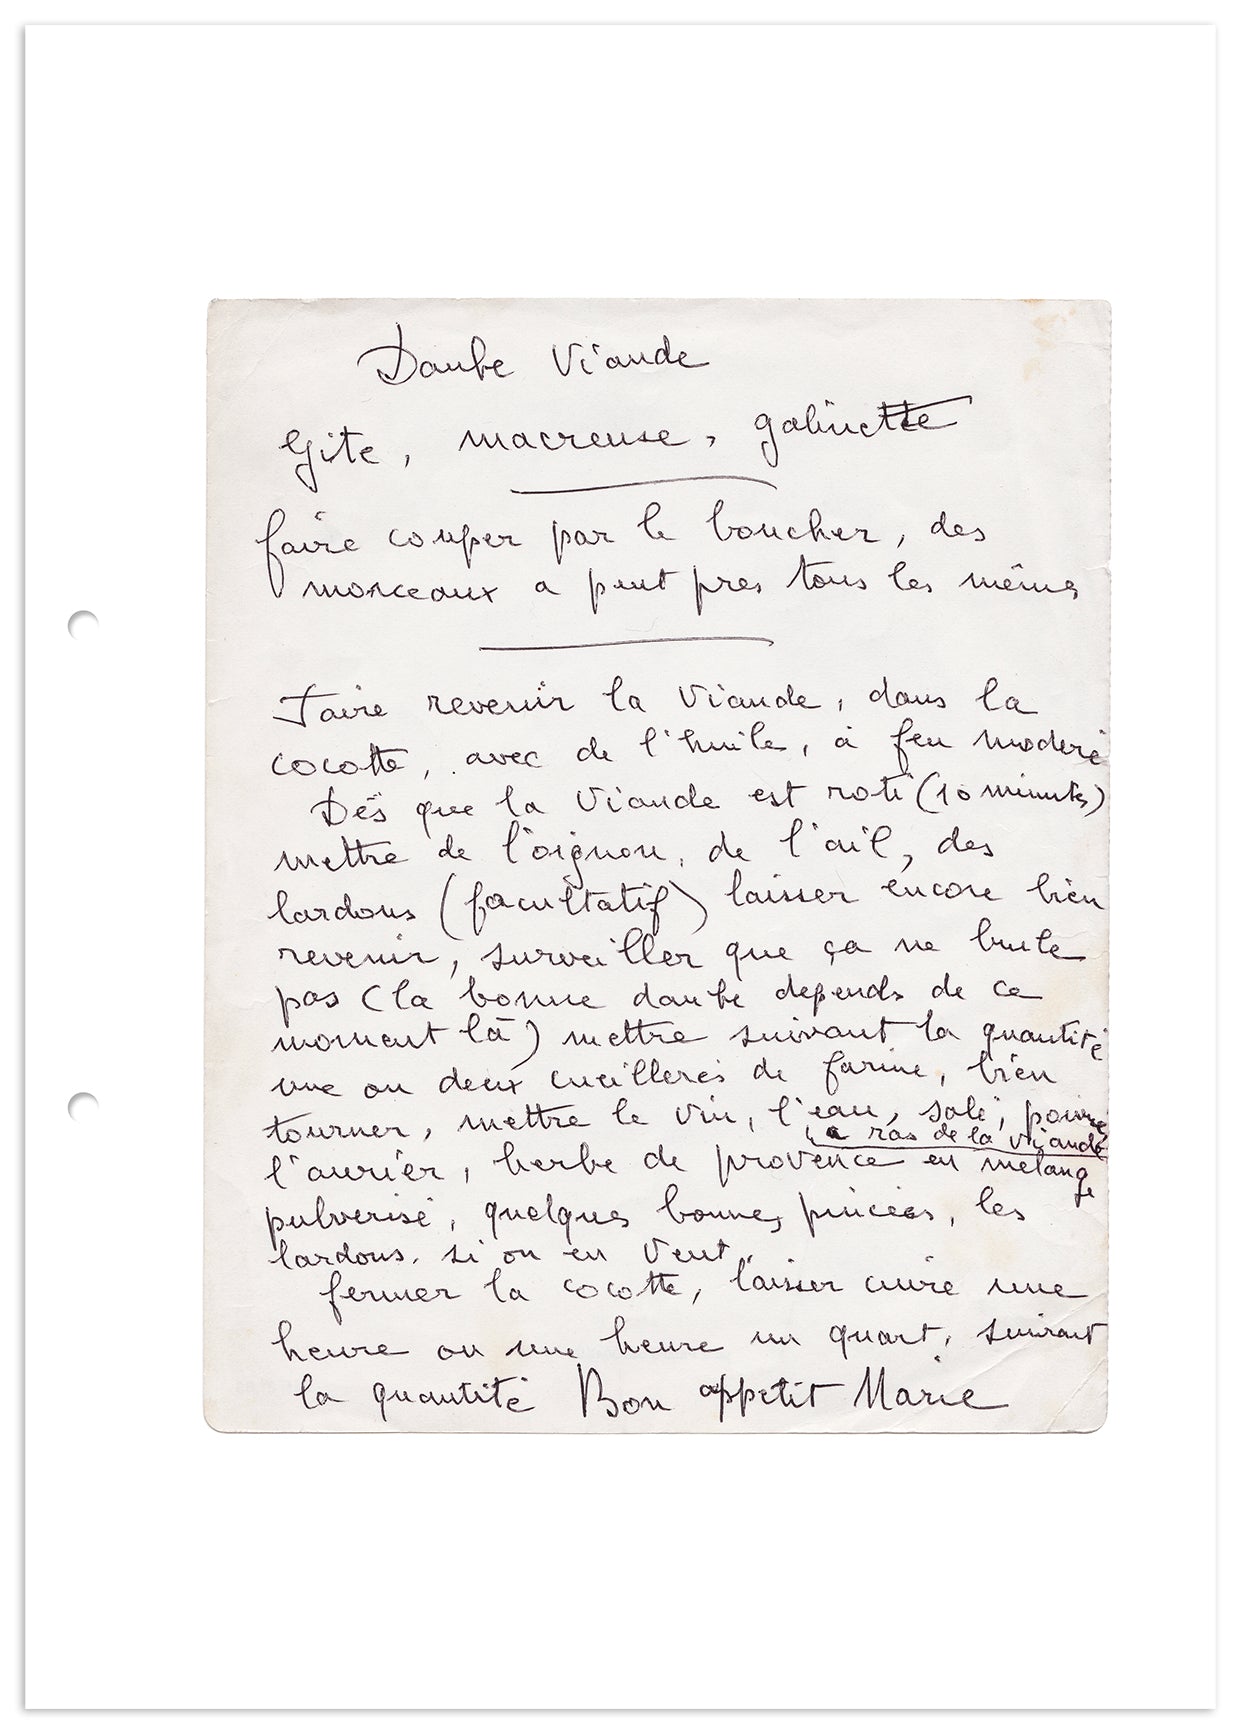 Daube Viande
Gite, macreuse, galinette
faire couper par le boucher, des
morceaux a peut pres tous les mêmes
Faire revenir la Viande, dans la
cocotte, avec de l'huile, à feu moderé
Dés que la Viande est roti (10 minutes)
mettre de l'oignon, de l'ail, des
lardons (facultatif) laisser encore bien
revenir, surveiller que ça ne brule
pas (la bonne daube depends de ce
moment là) mettre suivant la quantité
une ou deux cueillerés de farine, bien
tourner, mettre le vin, l'eau, salé, poivré
a ras de la viande
l'aurier, herbe de provence en mélange
pulverisé, quelques bonnes pincées, les
lardons, si on en veut,
fermer la cocotte, laisser cuire une
heure ou une heure un quart, suivant
la quantité Bon appetit Marie